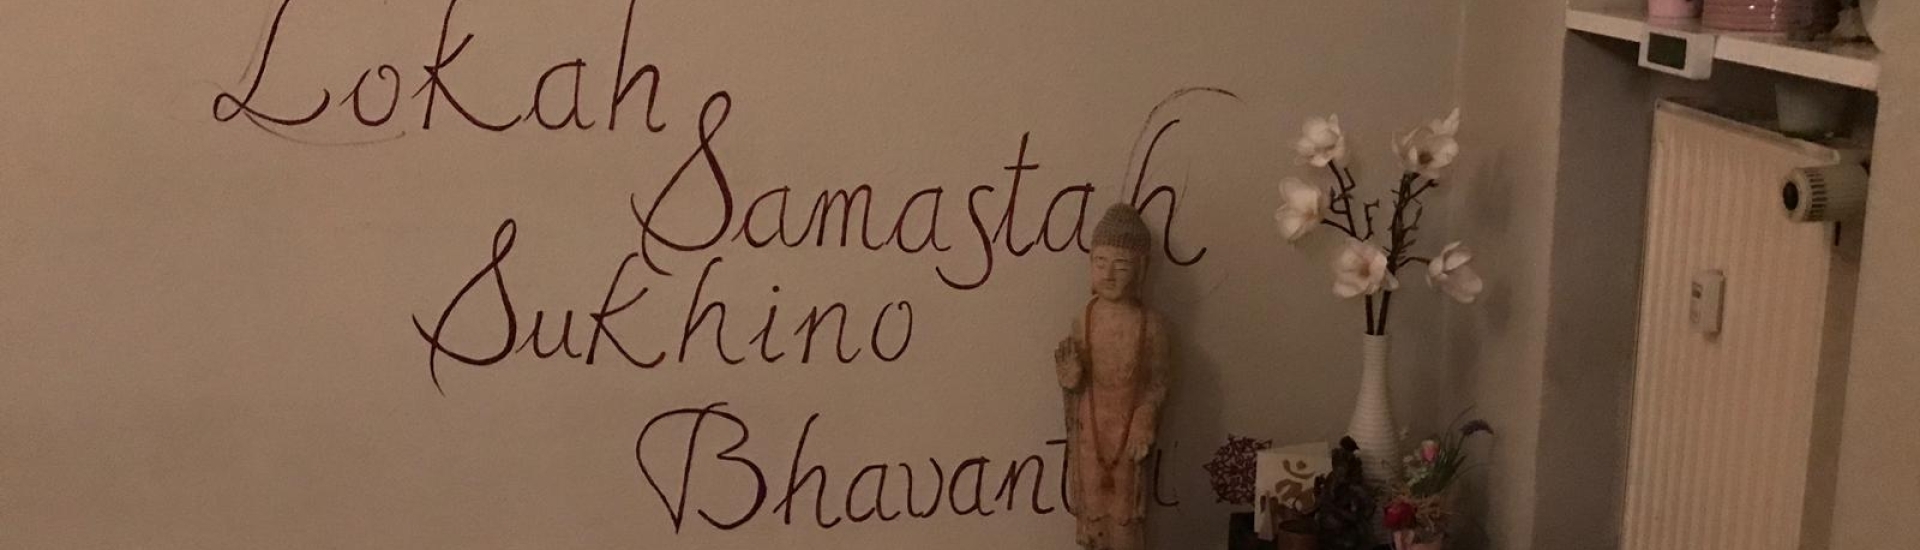 Lokah
Samastah
Sukhino
Bhavantu
ॐ